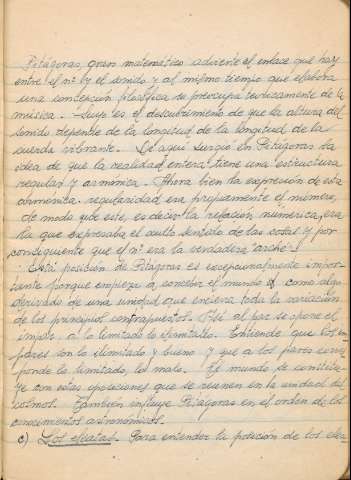 Pitágoras, gran matemático advierte el enlace que hay
entre el nº y el sonido y al mismo tiempo que elabora
una concepción filosófica se preocupa teóricamente de la
música. Suyo es el descubrimiento de que la altura del
sonido depende de la longitud de la longitud de la
cuerda vibrante. De aquí surgió en Pitágoras la
idea de que la realidad entera tiene una estructura
regular y armónica. Ahora bien la expresión de esta
armónica regularidad era propiamente el número,
de modo que este, es decir la relación numérica, era
la que expresaba el oculto sentido de las cosas y por
consiguiente que el nº era la verdadera "arché".
Esta posición de Pitágoras es excepcionalmente impor-
tante porque empieza a concebir el mundo como algo
derivado de una unidad que encierra toda la variación
de los principios contrapuestos. Así al par se opone el
impar, a lo limitado lo ilimitado. Entiende que los im-
pares son lo ilimitado y bueno y que a los pares corres-
ponde lo limitado, lo malo. El mundo se constitu-
ye con estas oposiciones que se reunen en la unidad del
cosmos. También influye Pitágoras en el orden de los
conocimientos astronómicos.
c) Los eleatas. Para entender la posición de los elea-